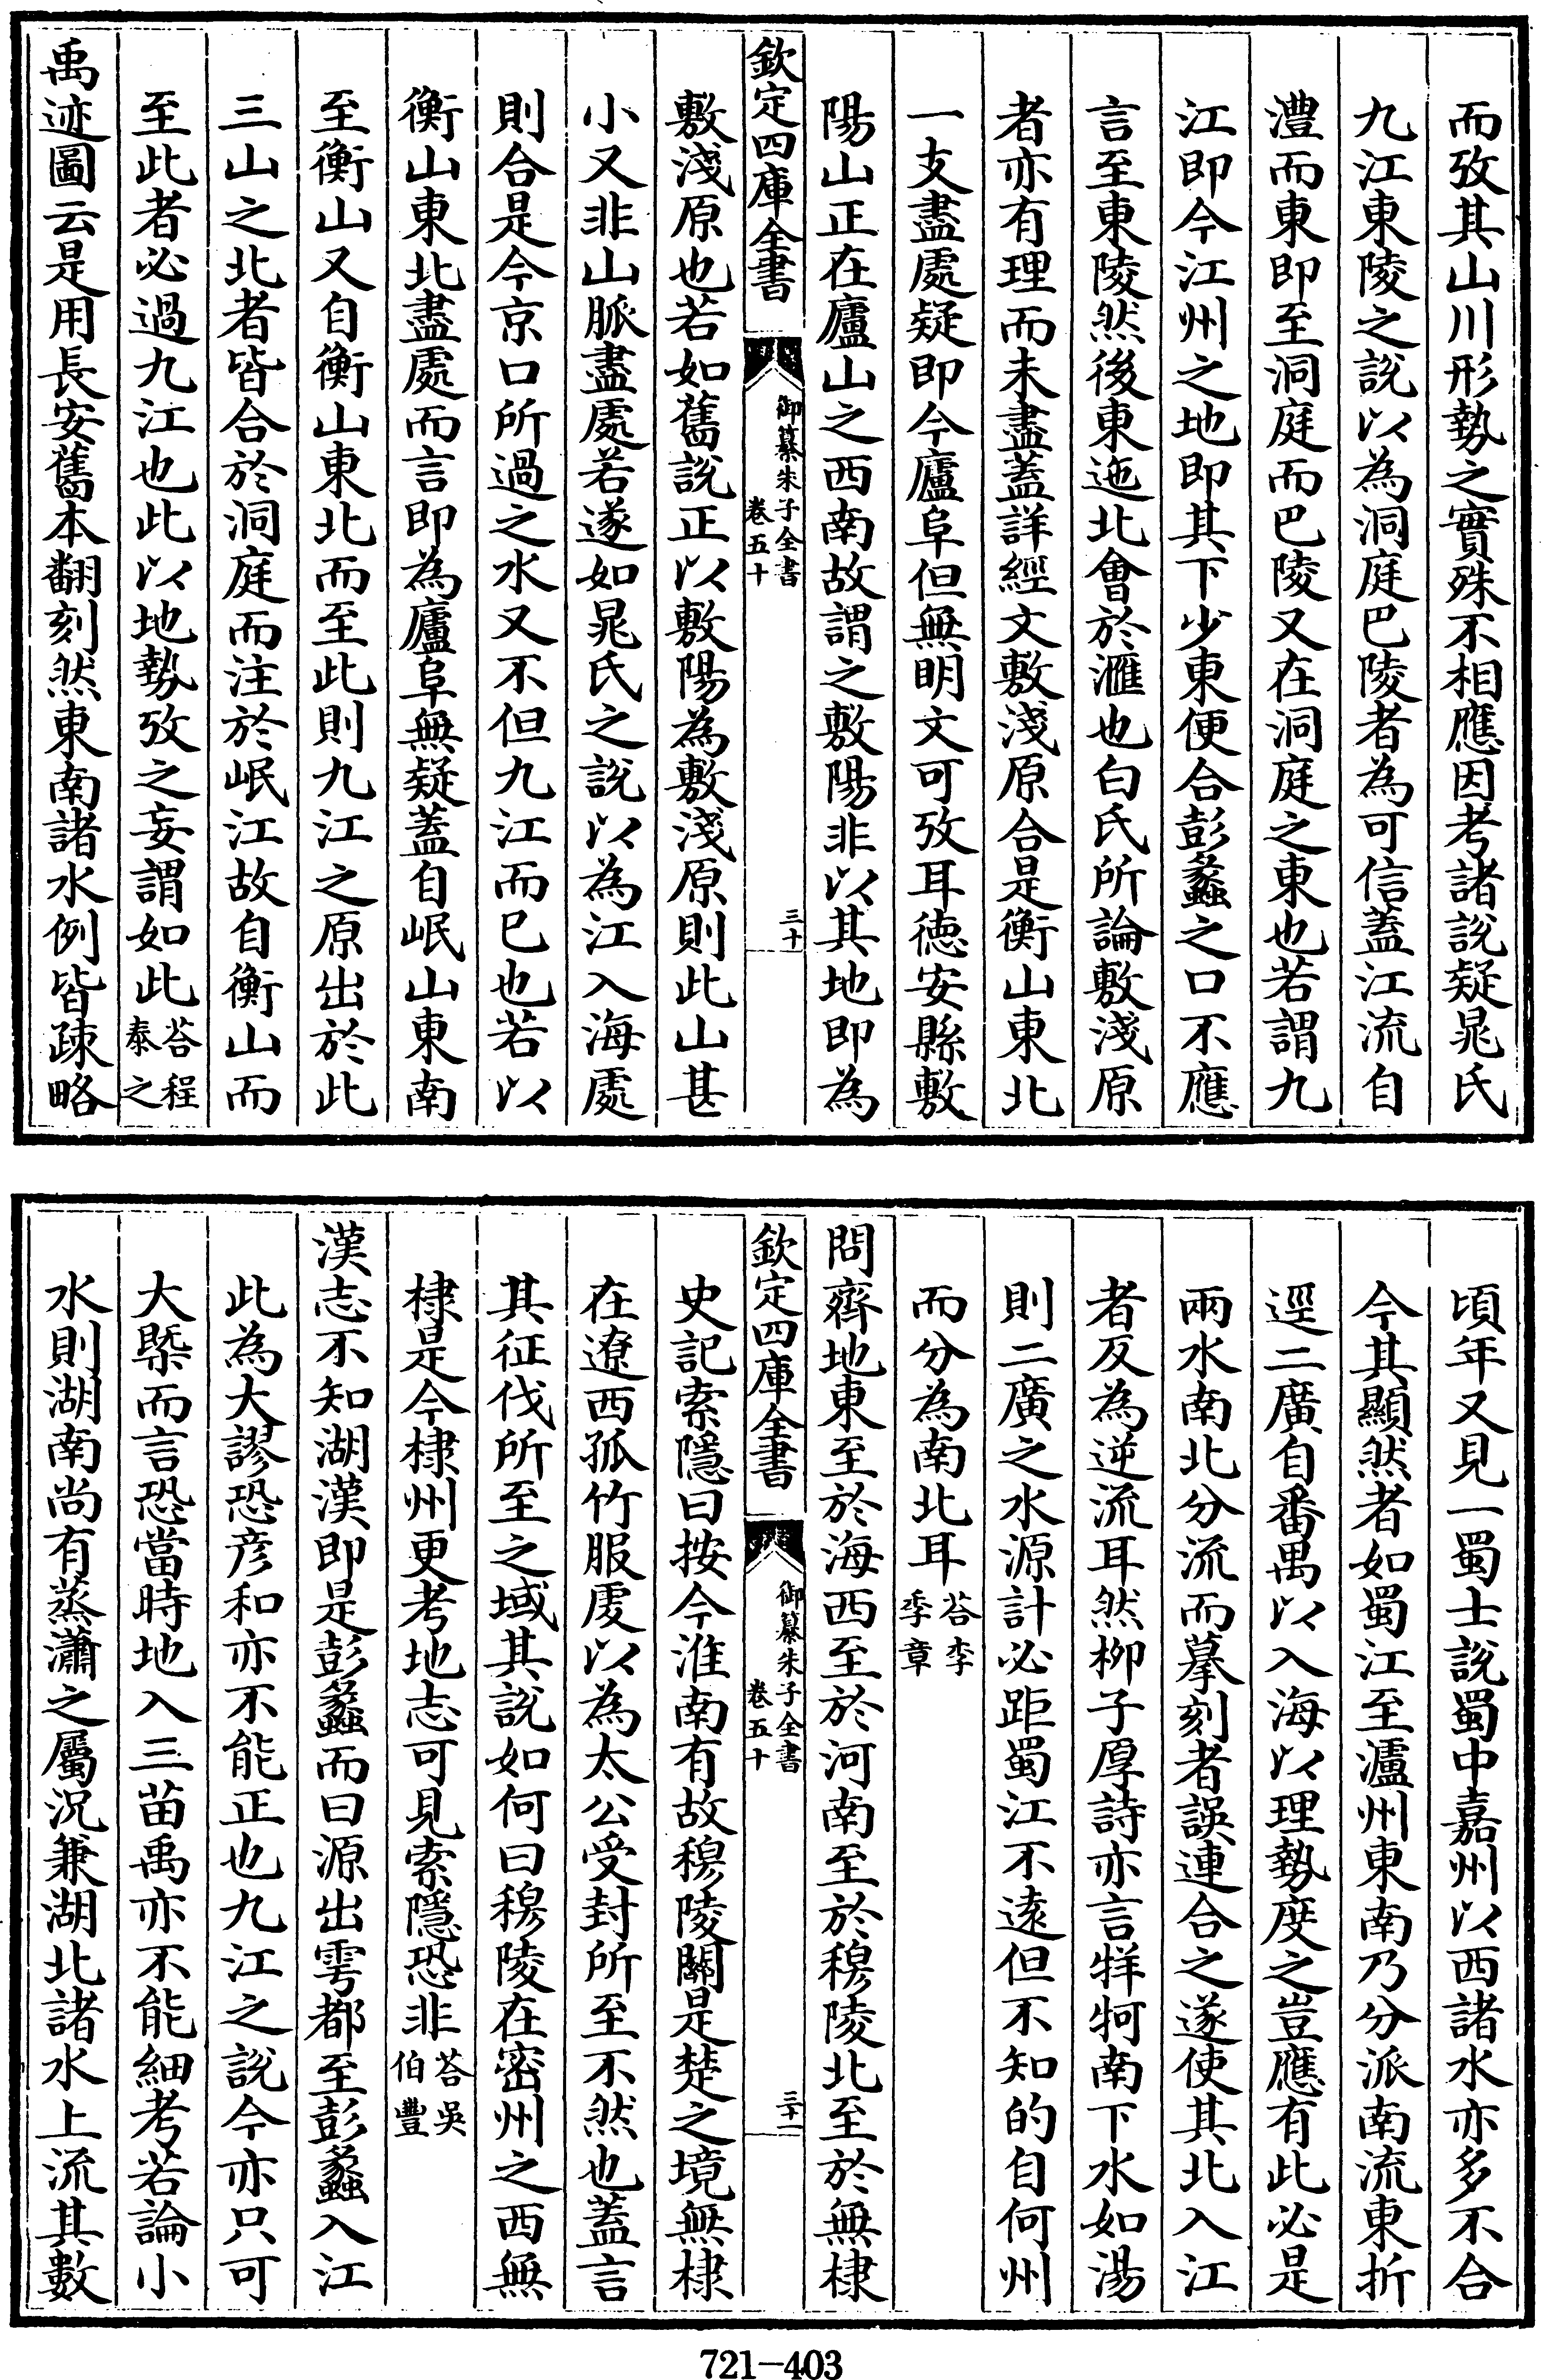 而攷其山川形勢之實殊不相應因考諸說疑晁氏
九江東陵之說以為洞庭巴陵者為可信蓋江流自
澧而東即至洞庭而巴陵又在洞庭之東也若謂九
江即今江州之地即其下少東便合彭蠡之口不應
言至東陵然後東迤北會於滙也白氏所論敷淺原
者亦有理而未盡蓋詳經文敷淺原合是衡山東北
一支盡處疑即今廬阜但無明文可攷耳德安縣敷
陽山正在廬山之西南故謂之敷陽非以其地即為
欽定四庫全書
御纂朱子全書
卷五十
三十
敷淺原也若如舊說正以敷陽為敷淺原則此山甚
小又非山脈盡處若遂如晁氏之說以為江入海處
則合是今京口所過之水又不但九江而已也若以
衡山東北盡處而言即為廬阜無疑蓋自岷山東南
至衡山又自衡山東北而至此則九江之原出於此
三山之北者皆合於洞庭而注於岷江故自衡山而
至此者必過九江也此以地勢攷之妄謂如此荅程
泰之
禹迹圖云是用長安舊本翻刻然東南諸水例皆疎略
頃年又見一蜀士說蜀中嘉州以西諸水亦多不合
今其顯然者如蜀江至瀘州東南乃分派南流東折
逕二廣自番禺以入海以理勢度之豈應有此必是
兩水南北分流而摹刻者誤連合之遂使其北入江
者反為逆流耳然柳子厚詩亦言牂牁南下水如湯
則二廣之水源計必距蜀江不遠但不知的自何州
而分為南北耳荅李
季章
問齊地東至於海西至於河南至於穆陵北至於無棣
欽定四庫全書
御纂朱子全書
卷五十
三十一
史記索隱曰按今淮南有故穆陵關是楚之境無棣
在遼西孤竹服虔以為太公受封所至不然也蓋言
其征伐所至之域其說如何曰穆陵在密州之西無
棣是今棣州更考地志可見索隱恐非荅吳
伯豐
漢志不知湖漢即是彭蠡而曰源出雩都至彭蠡入江
此為大謬恐彥和亦不能正也九江之說今亦只可
大槩而言恐當時地入三苗禹亦不能細考若論小
水則湖南尚有蒸瀟之屬況兼湖北諸水上流其數
721-403